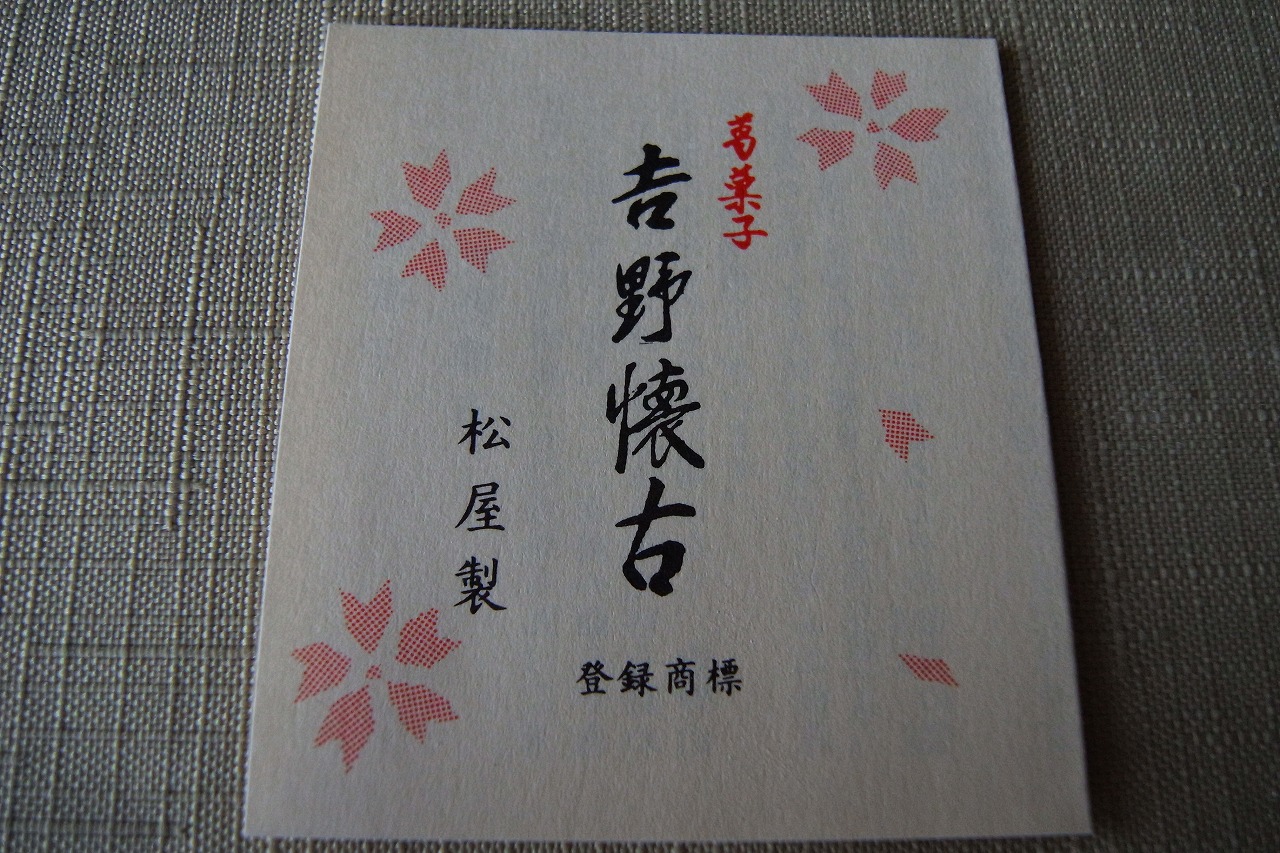 葛菓子
𠮷野懐古
松屋製
登録商標